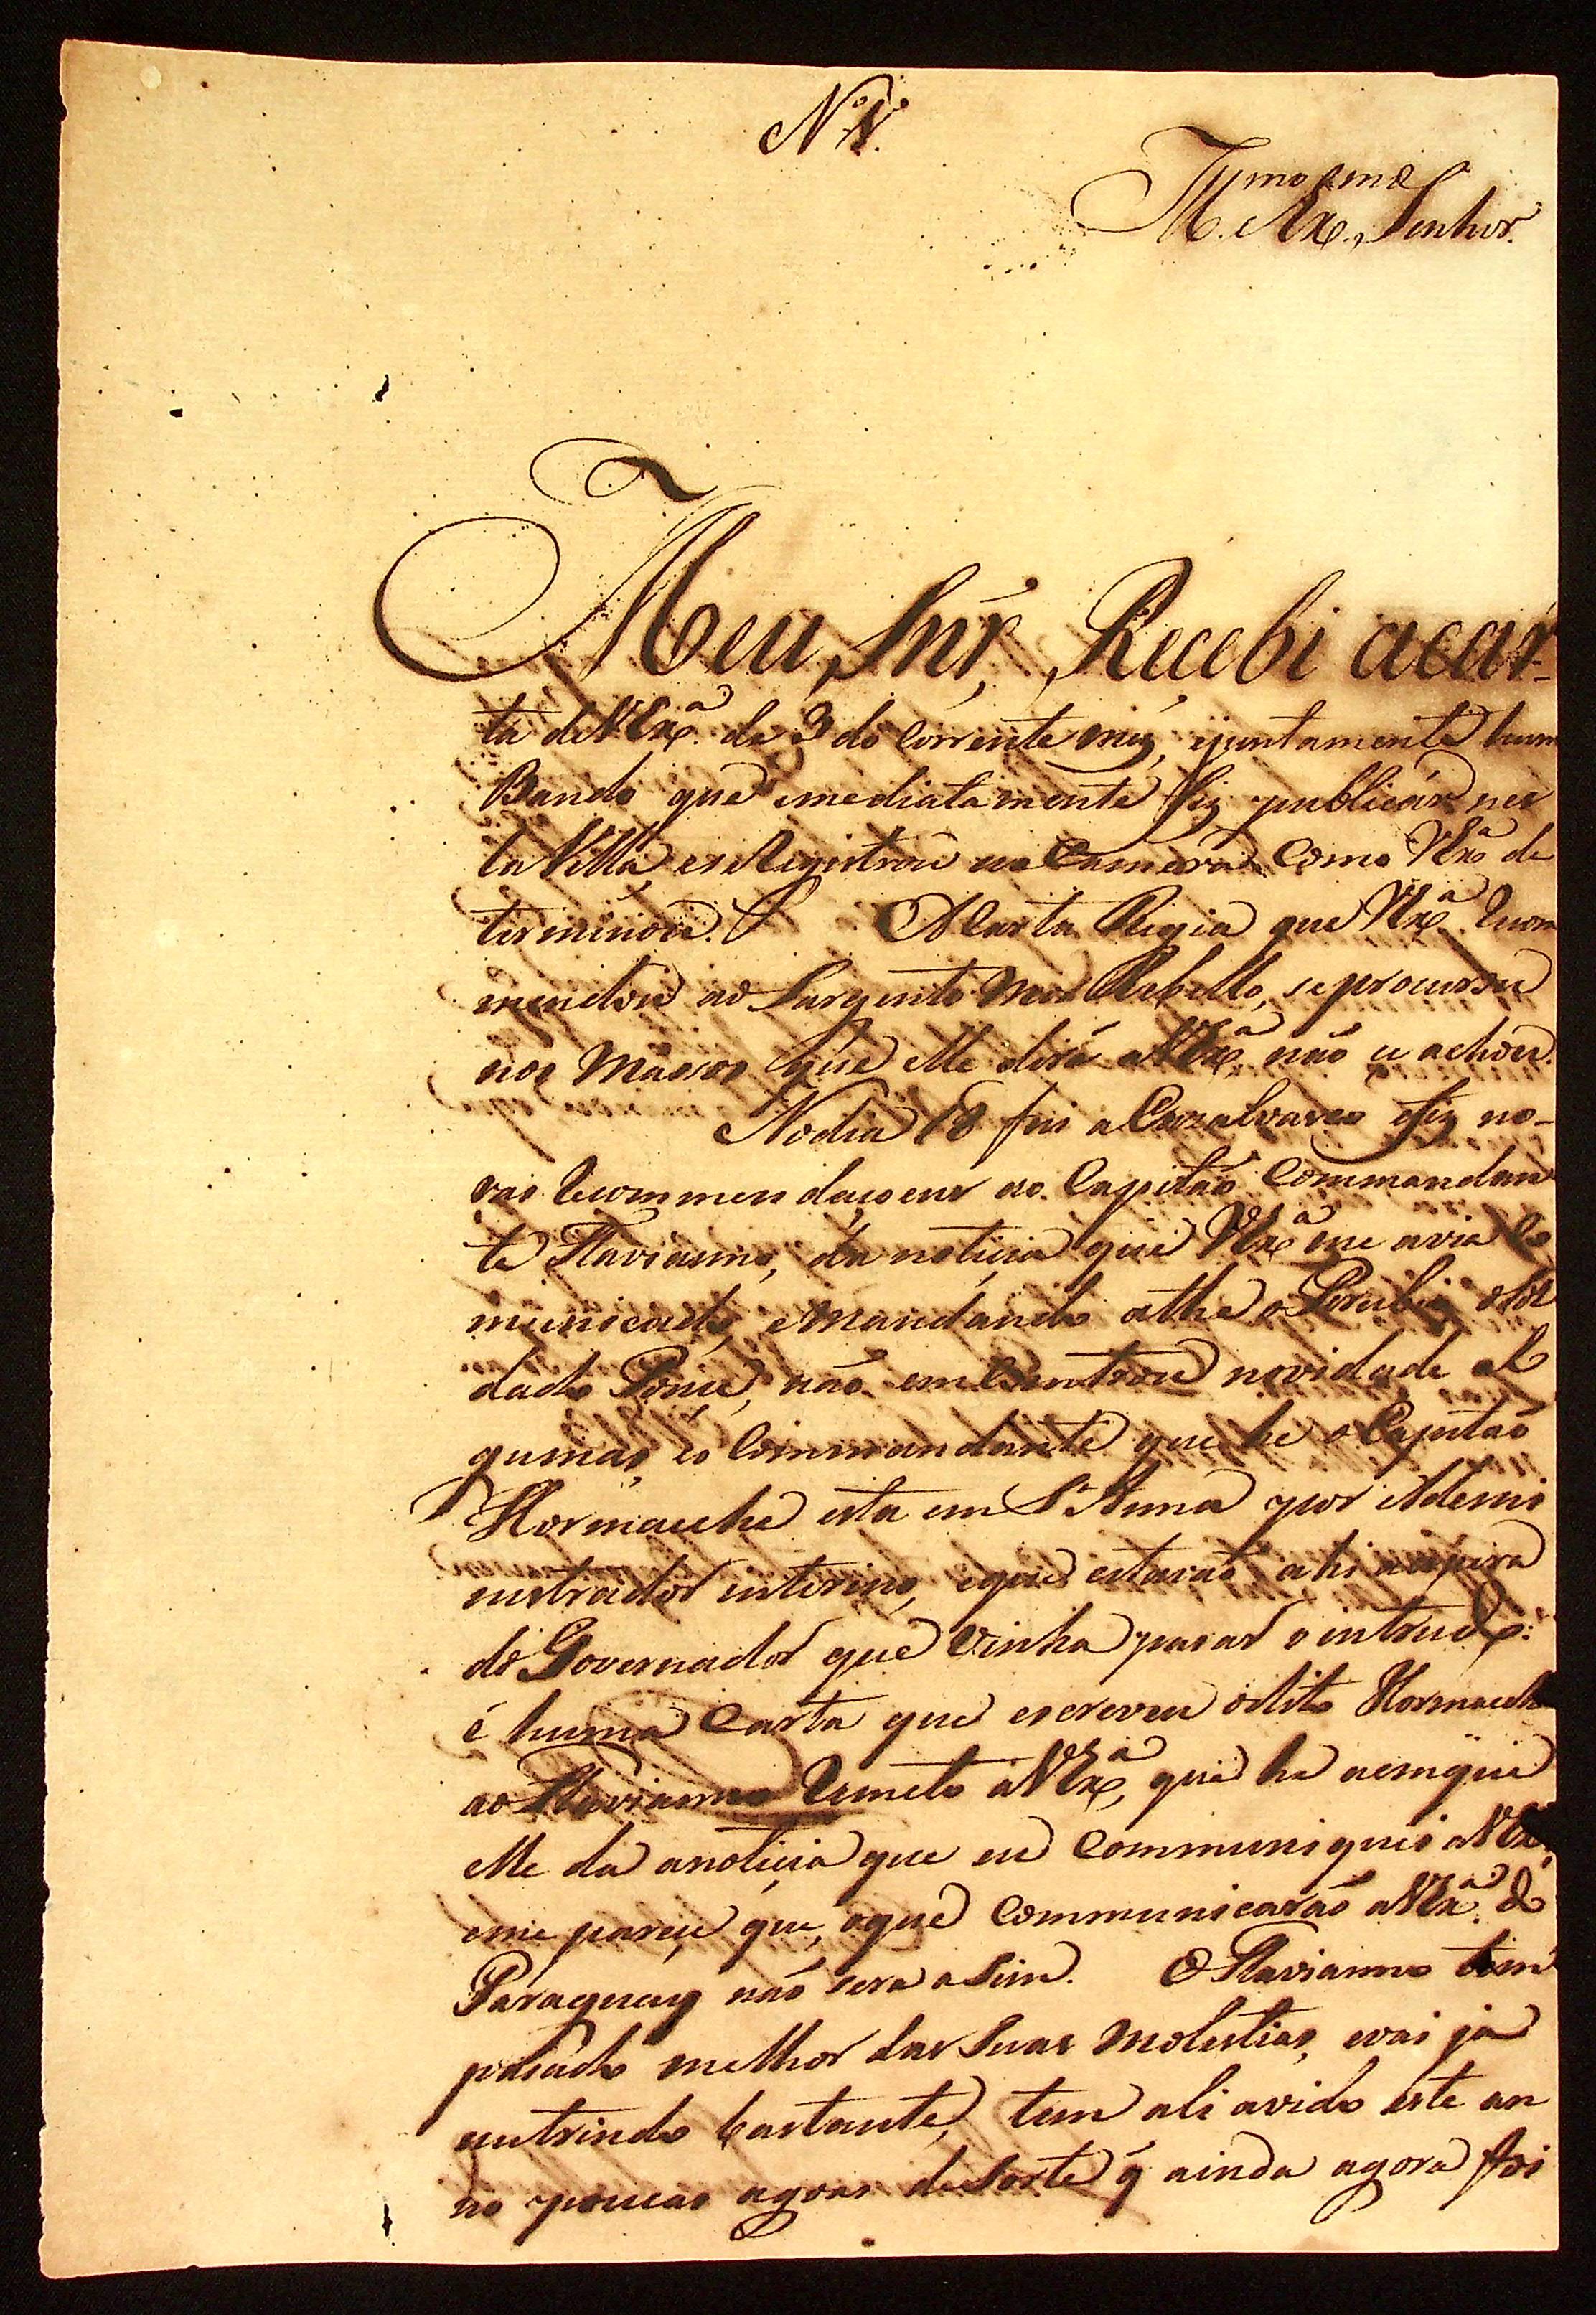 Nº 1.
Illmo. e Exmo. Senhor.
Meu Snr, Recebi acar-
ta de VExa. de 3 do Corrente mez, ejuntamente hum
Bando que emediatamente fiz publicár nes
ta Villa, ese Registrou na Camera Como VExa de
terminou. A Carta Regia que VExa. recom
mendou ao Sargento Mor Rebello, se procurou
nos Massos que elle dirá a VExa, não se achou.
Nodia 18 fui a Cazalvasco efiz no-
vas recommendaçoens ao Capitão Commandan
te Flavianno, da noticia que VExa me avia Co
municado, emandando athe o Sol
dado não emControu novidade al
gumas, eo Commandante que he o Capitão
Hormaeche esta em S. Anna por Admi
nistrador interino, eque estavão ahi aespera
do Governador que vinha pasar o intrudo:
é huma Carta que escreveu odito Hormaeche
ao Flavianno remeto a VExa, que he aemque
elle da anoticia que eu Communiquei a VExa,
eme pareçe que, oque Communicarão a VExa. do
Paraguay não sera asim. O Flavianno tem
pasado melhor das Suas molestias, evai já
nutrindo bastante, tem ali avido este an
no poucas agoas deSorte q̃ ainda agora foi